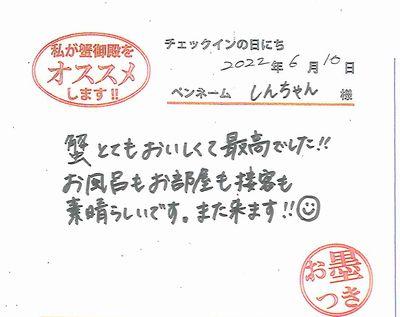 私が蟹御殿を
オススメ
します!!
チェックインの日にち
2022年6月10日
ペンネーム しんちゃん 様
蟹とてもおいしくて最高でした!!
お風呂もお部屋も接客も
素晴らしいです。また来ます!!
お墨
つき